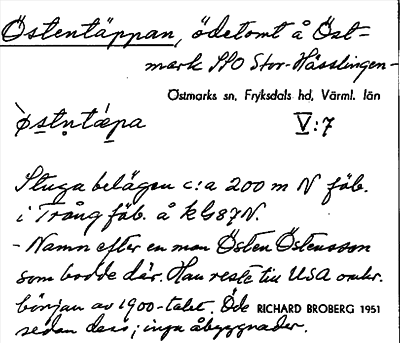 Östentäppan, ödetomt å Öst-
mark SSO Stor-Hässlingen -
Östmarks sn, Fryksdals hd, Värml. län
V:7
Stuga belägen c:a 200 m N fäb.
i Trång fäb. å kG87N.
- Namn efter en man Östen Östensson
som bodde där. Han reste till USA omkr.
början av 1900-talet. Öde
RICHARD BROBERG 1951
sedan dess; inga åbyggnader.